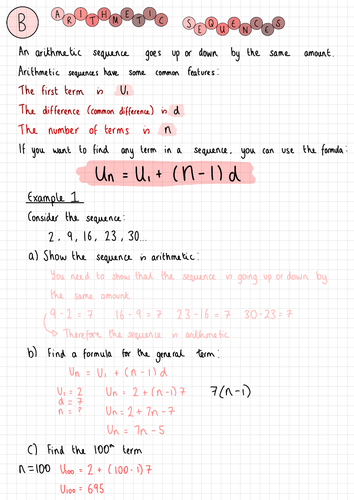 B ARITHMETIC SEQUENCES
An arithmetic sequence goes up or down by the same amount.
Arithmetic sequences have some common features:
The first term is U₁
The difference (common difference) is d
The number of terms is n
If you want to find any term in a sequence, you can use the formula:
Un = U₁ + (n-1)d
Example 1
Consider the sequence:
2, 9, 16, 23, 30...
a) Show the sequence is arithmetic:
You need to show that the sequence is going up or down by
the same amount
9-2=7 16-9=7 23-16=7 30-23=7
Therefore the sequence is arithmetic
b) Find a formula for the general term:
Un = U₁ + (n-1)d
U₁ = 2 Un = 2 + (n-1)7 7(n-1)
d = 7
n = ? Un = 2 + 7n - 7
Un = 7n - 5
c) Find the 100th term
n=100 U₁₀₀ = 2 + (100-1)7
U₁₀₀ = 695